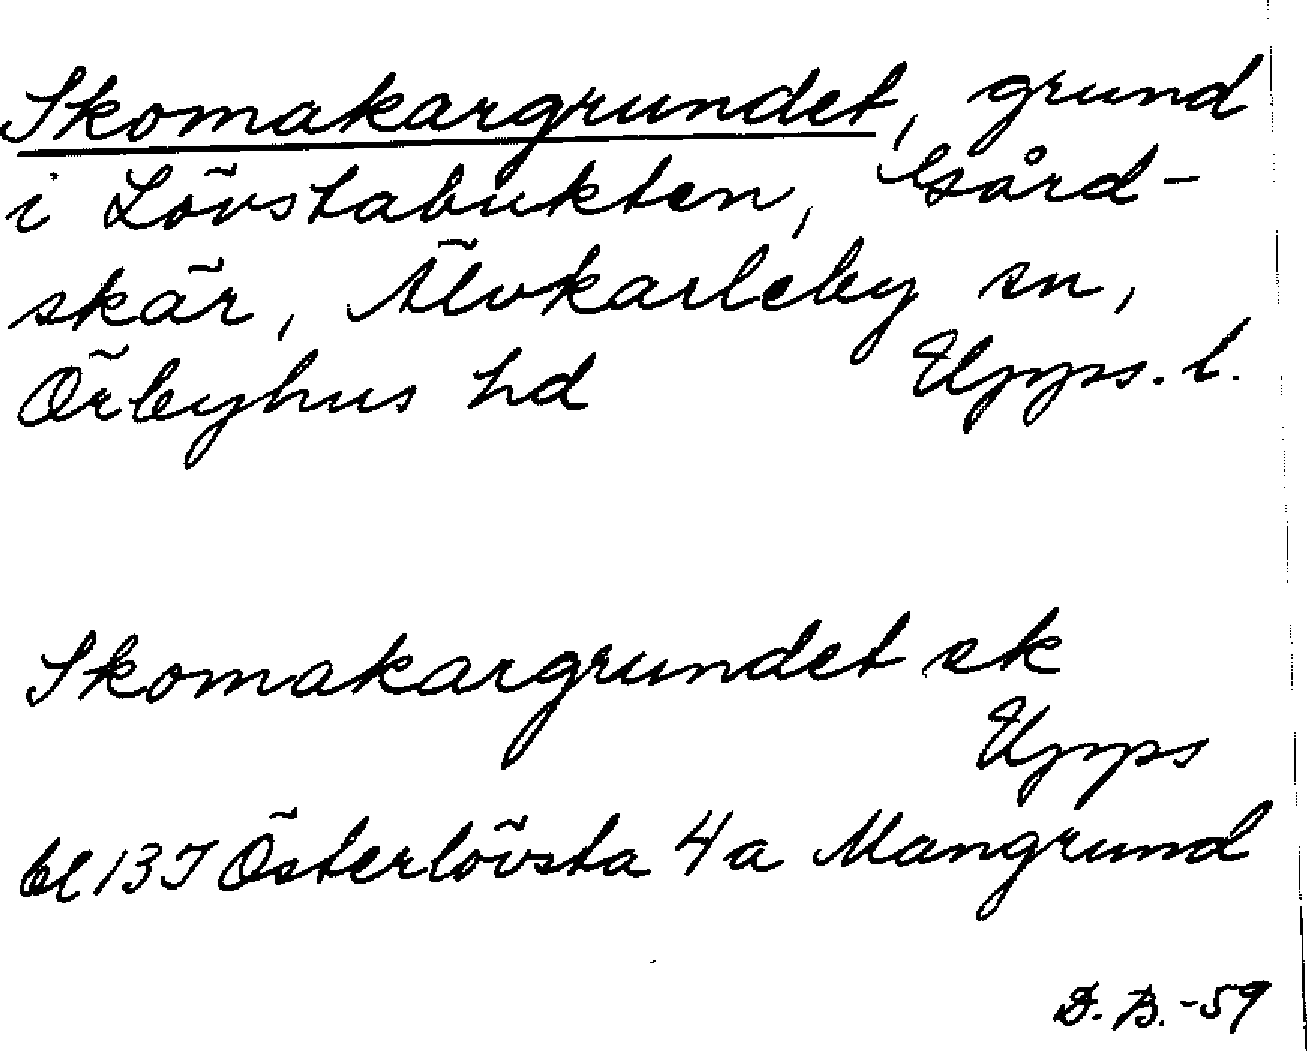 Skomakargrundet, grund
i Lövstabukten, Gård-
skär, Älvkarleby sn,
Örbyhus hd Upps. l.
Skomakargrundet ek
Upps
bl 13 I Österlövsta 4a Mangrund
D. B. -59